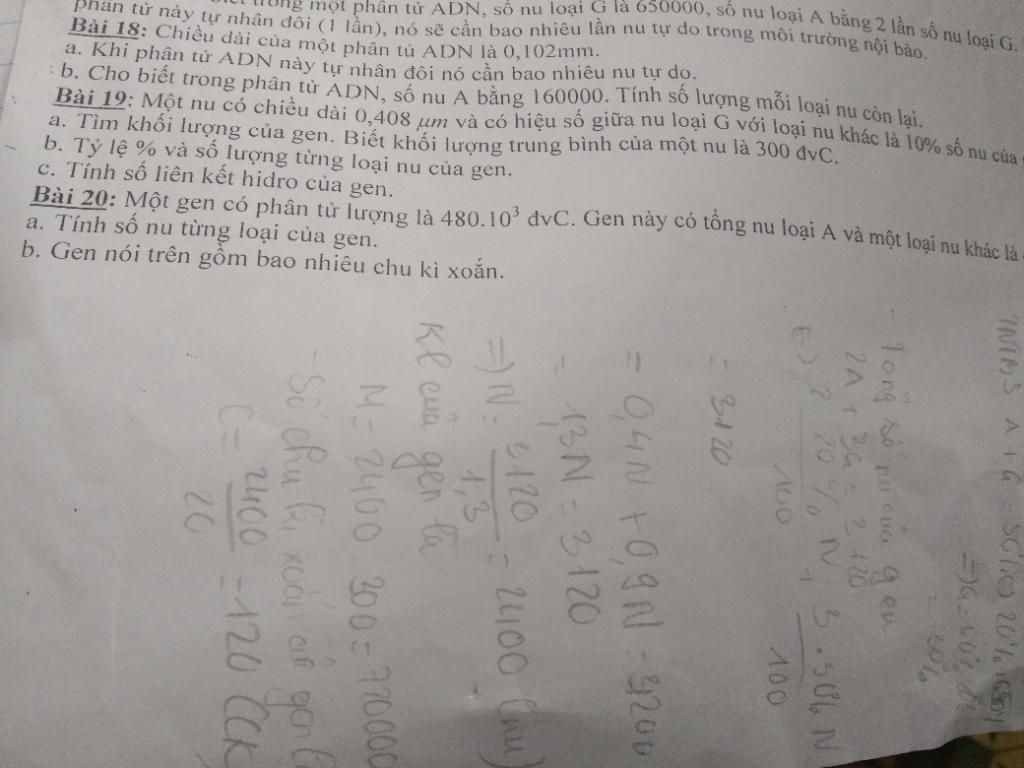 một phân tử ADN, số nu loại G là 650000, số nu loại A bằng 2 lần số nu loại G.
phân tử này tự nhân đôi (1 lần), nó sẽ cần bao nhiêu lần nu tự do trong môi trường nội bào.
Bài 18: Chiều dài của một phân tủ ADN là 0,102mm.
a. Khi phân tử ADN này tự nhân đôi nó cần bao nhiêu nu tự do.
b. Cho biết trong phân tử ADN, số nu A bằng 160000. Tính số lượng mỗi loại nu còn lại.
Bài 19: Một nu có chiều dài 0,408 μm và có hiệu số giữa nu loại G với loại nu khác là 10% số nu của
a. Tìm khối lượng của gen. Biết khối lượng trung bình của một nu là 300 đvC.
b. Tỷ lệ % và số lượng từng loại nu của gen.
c. Tính số liên kết hidro của gen.
Bài 20: Một gen có phân tử lượng là 480.10³ đvC. Gen này có tổng nu loại A và một loại nu khác là
a. Tính số nu từng loại của gen.
b. Gen nói trên gồm bao nhiêu chu kì xoắn.
A + G = 50% (=) 20%
=) G = 50%
= 30%
- Tổng số nu của gen
2A + 3G = 3120
(=) 2 . 20% N + 3 . 30% N
100 100
= 3120
= 0,4N + 0,9N =
= 1,3N = 3120
=) N = 3120 / 1,3 = 2400 (nu)
Kl của gen là
M = 2400 . 300 = 720000
- Số chu kì xoắn của gen
C = 2400 / 20 = 120 (CK